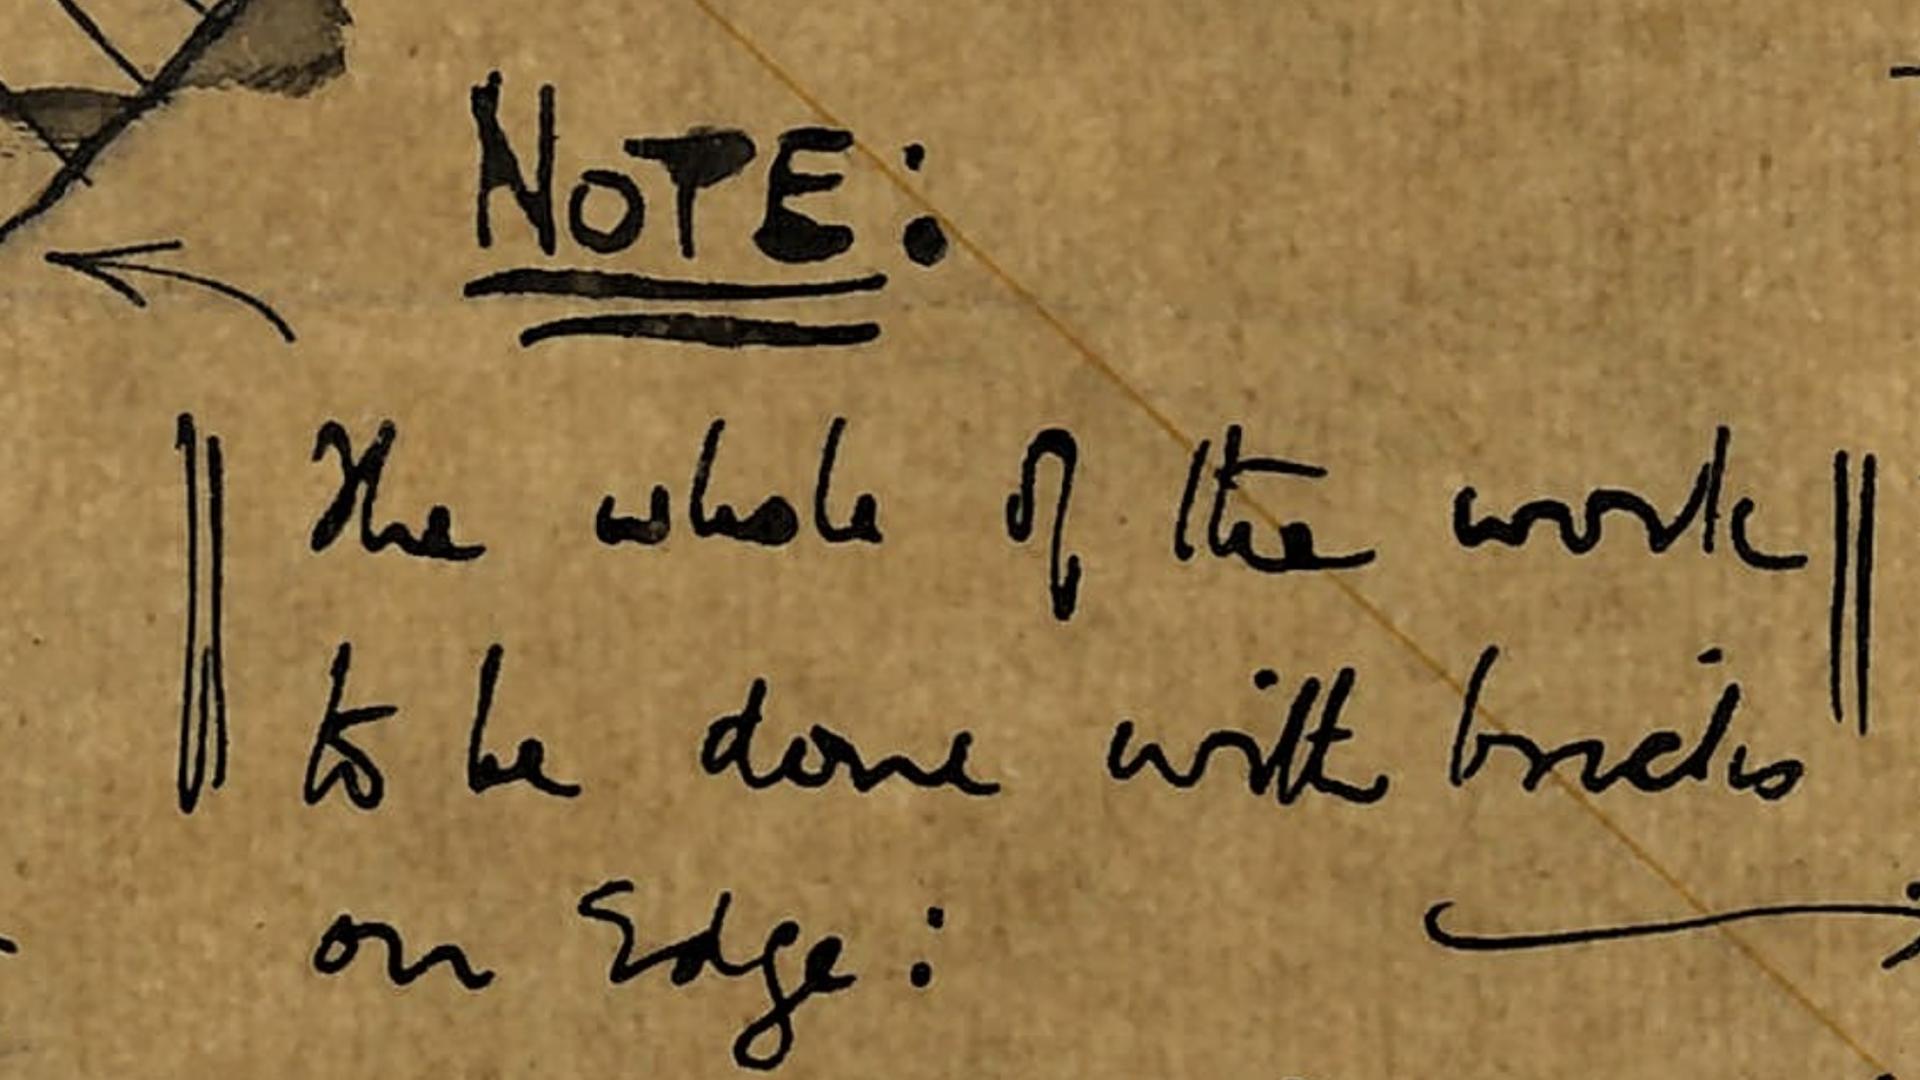 NOTE:
The whole of the work
to be done with bricks
on Edge: